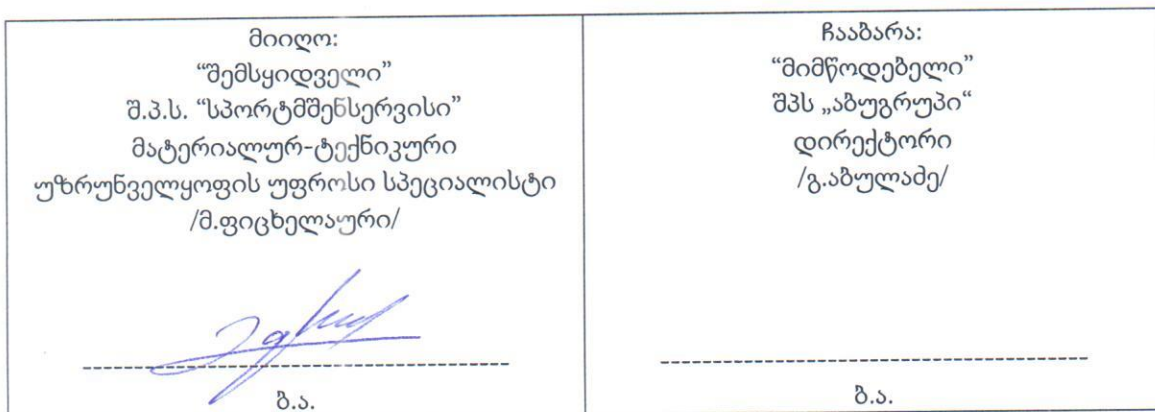 მიიღო:
“შემსყიდველი”
შ.პ.ს. “სპორტმშენსერვისი”
მატერიალურ-ტექნიკური
უზრუნველყოფის უფროსი სპეციალისტი
/მ.ფიცხელაური/
ბ.ა.
ჩააბარა:
“მიმწოდებელი”
შპს „აბუგრუპი“
დირექტორი
/გ.აბულაძე/
ბ.ა.